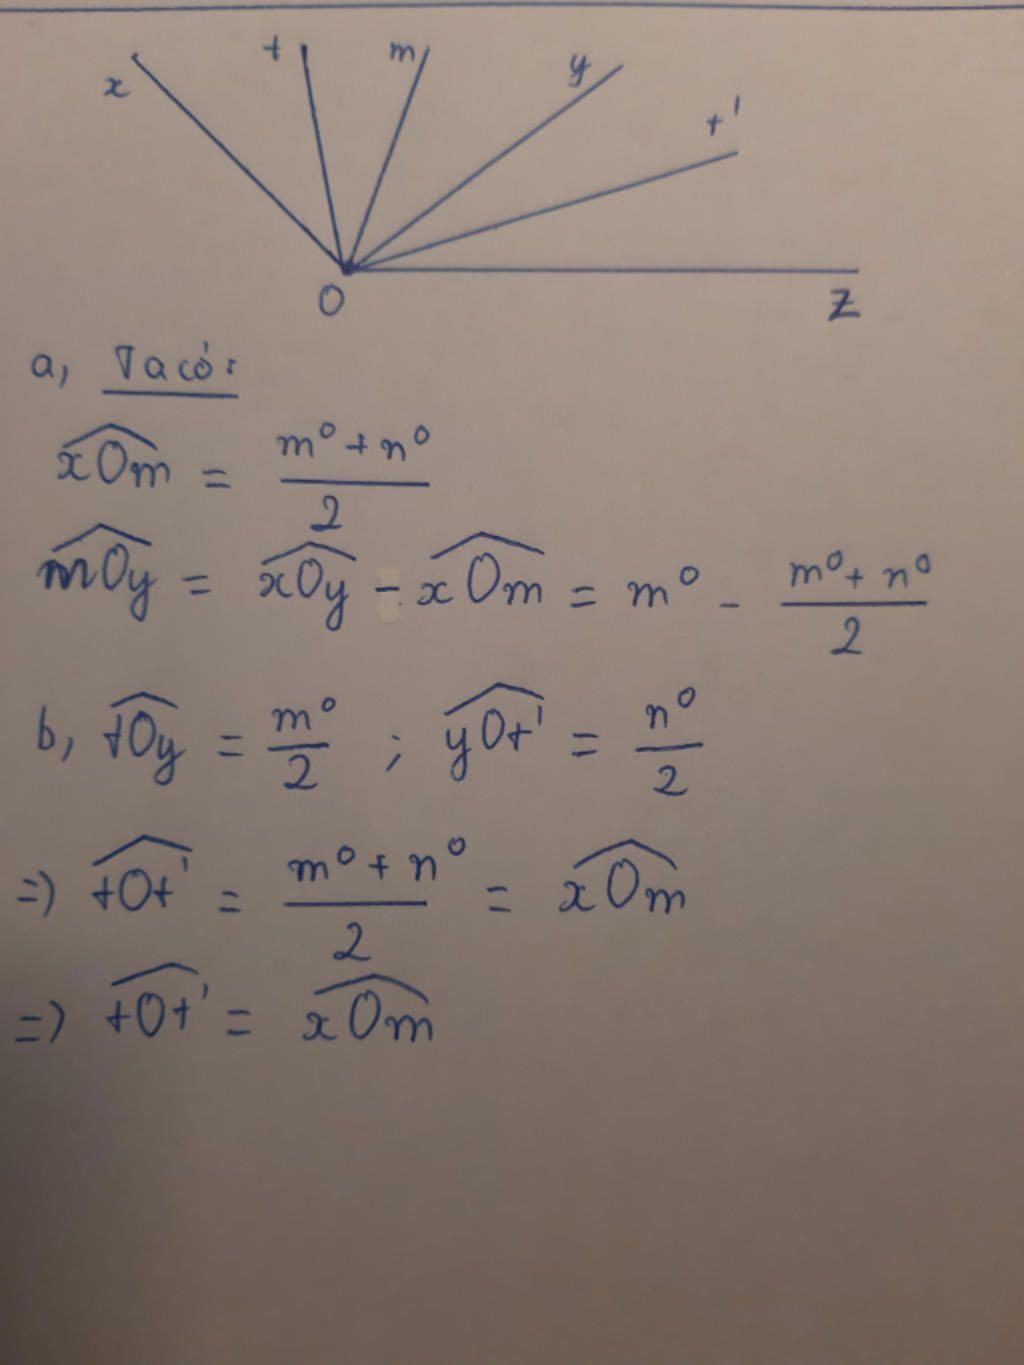 x t m y t'
O z
a, Ta có:
xOm = (m° + n°)/2
mOy = xOy - xOm = m° - (m° + n°)/2
b, tOy = m°/2 ; yOt' = n°/2
=> tOt' = (m° + n°)/2 = xOm
=> tOt' = xOm